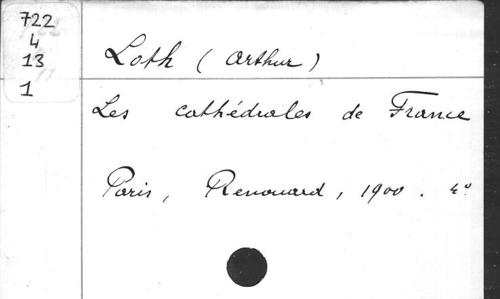 722
4
13
1
Loth (Arthur)
Les cathédrales de France
Paris, Renouard, 1900. 4º